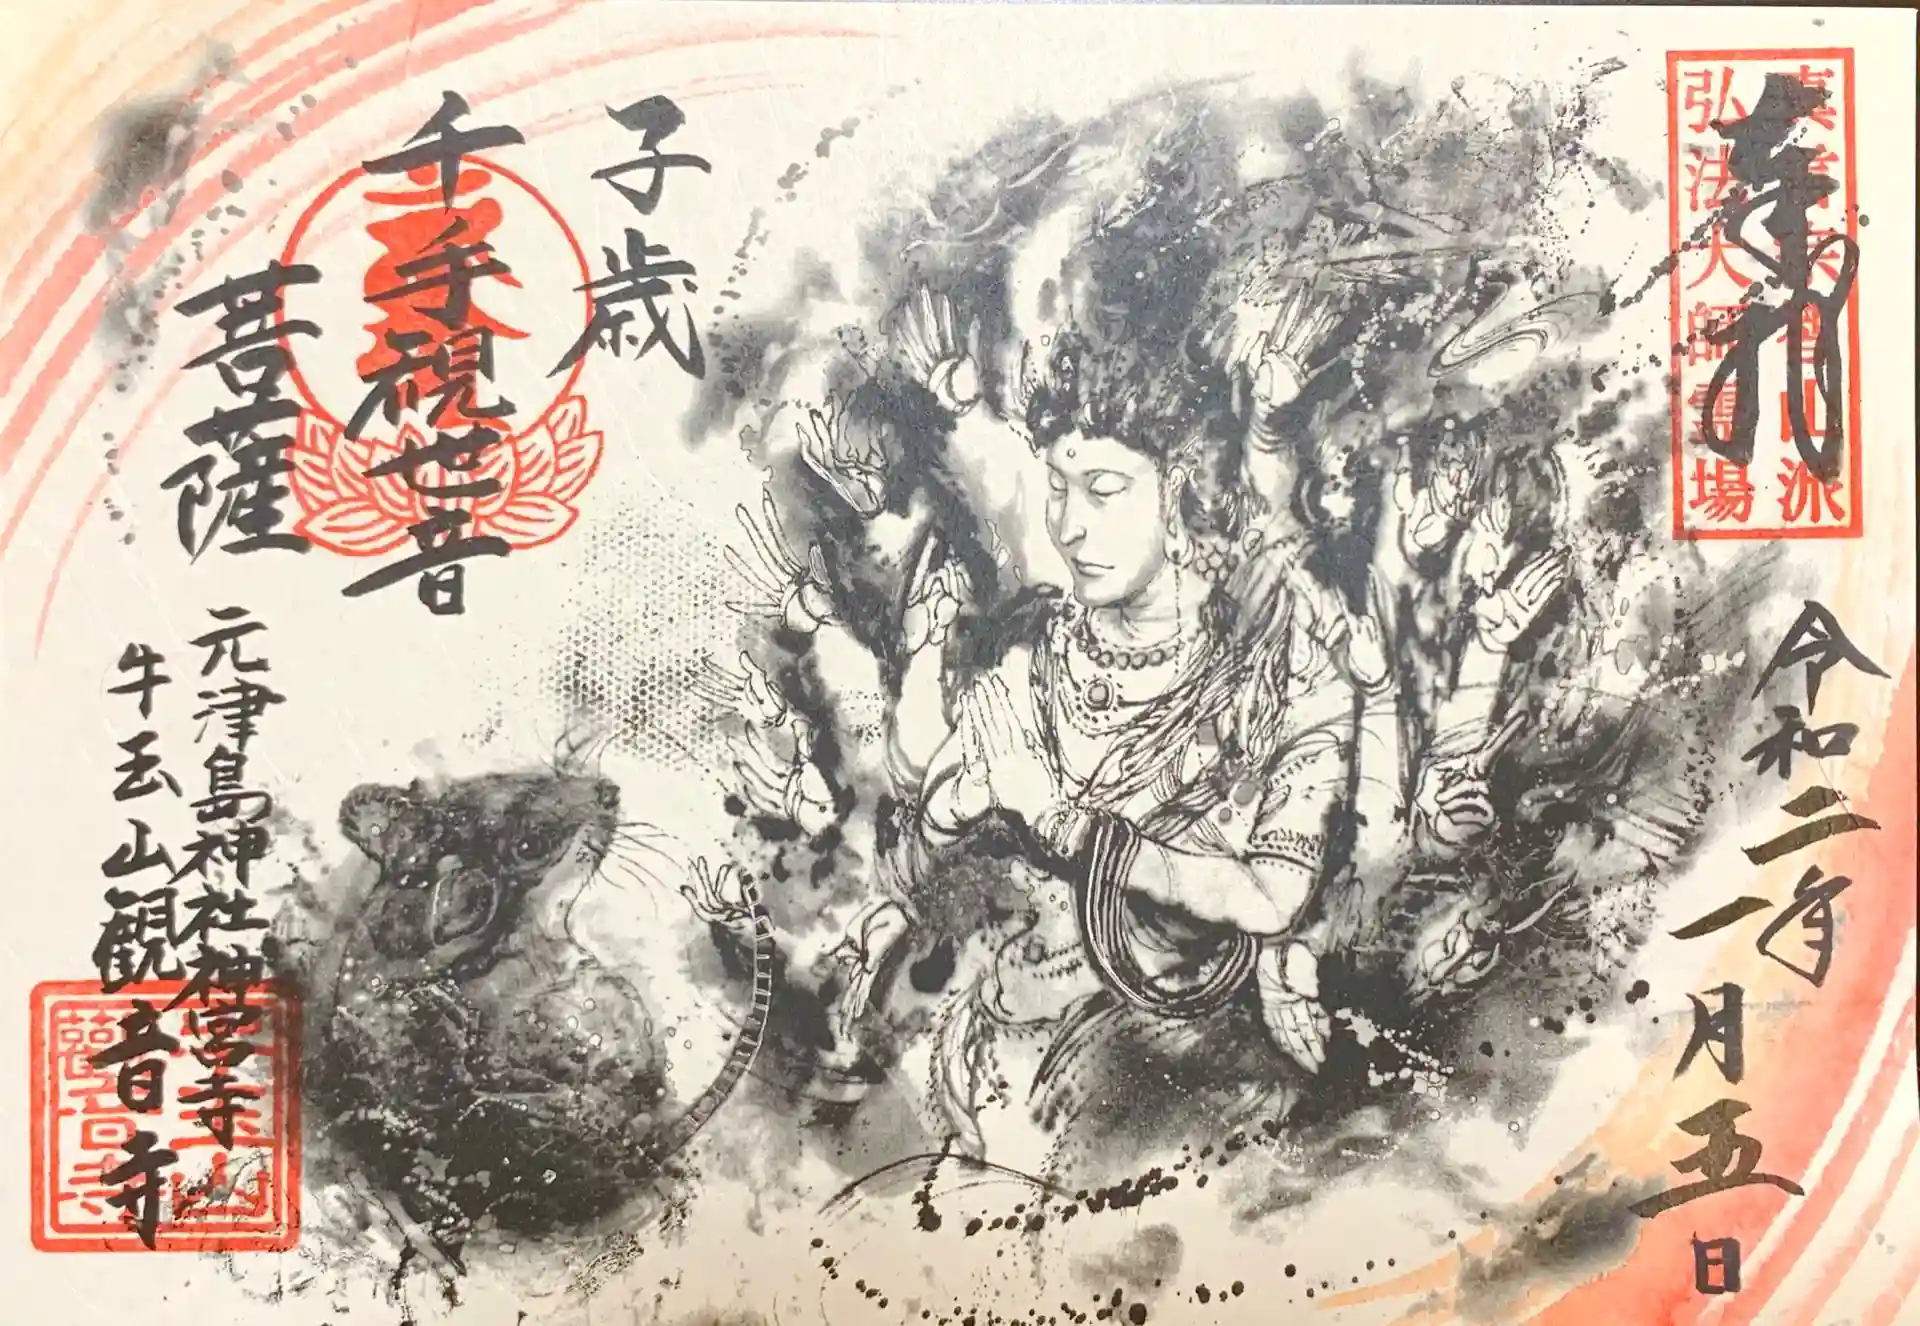 奉拝
真言宗智山派
弘法大師霊場
令和二年
一月五日
子歳
千手観世音
菩薩
元津島神社神宮寺
牛玉山観音寺
牛玉山
観音寺